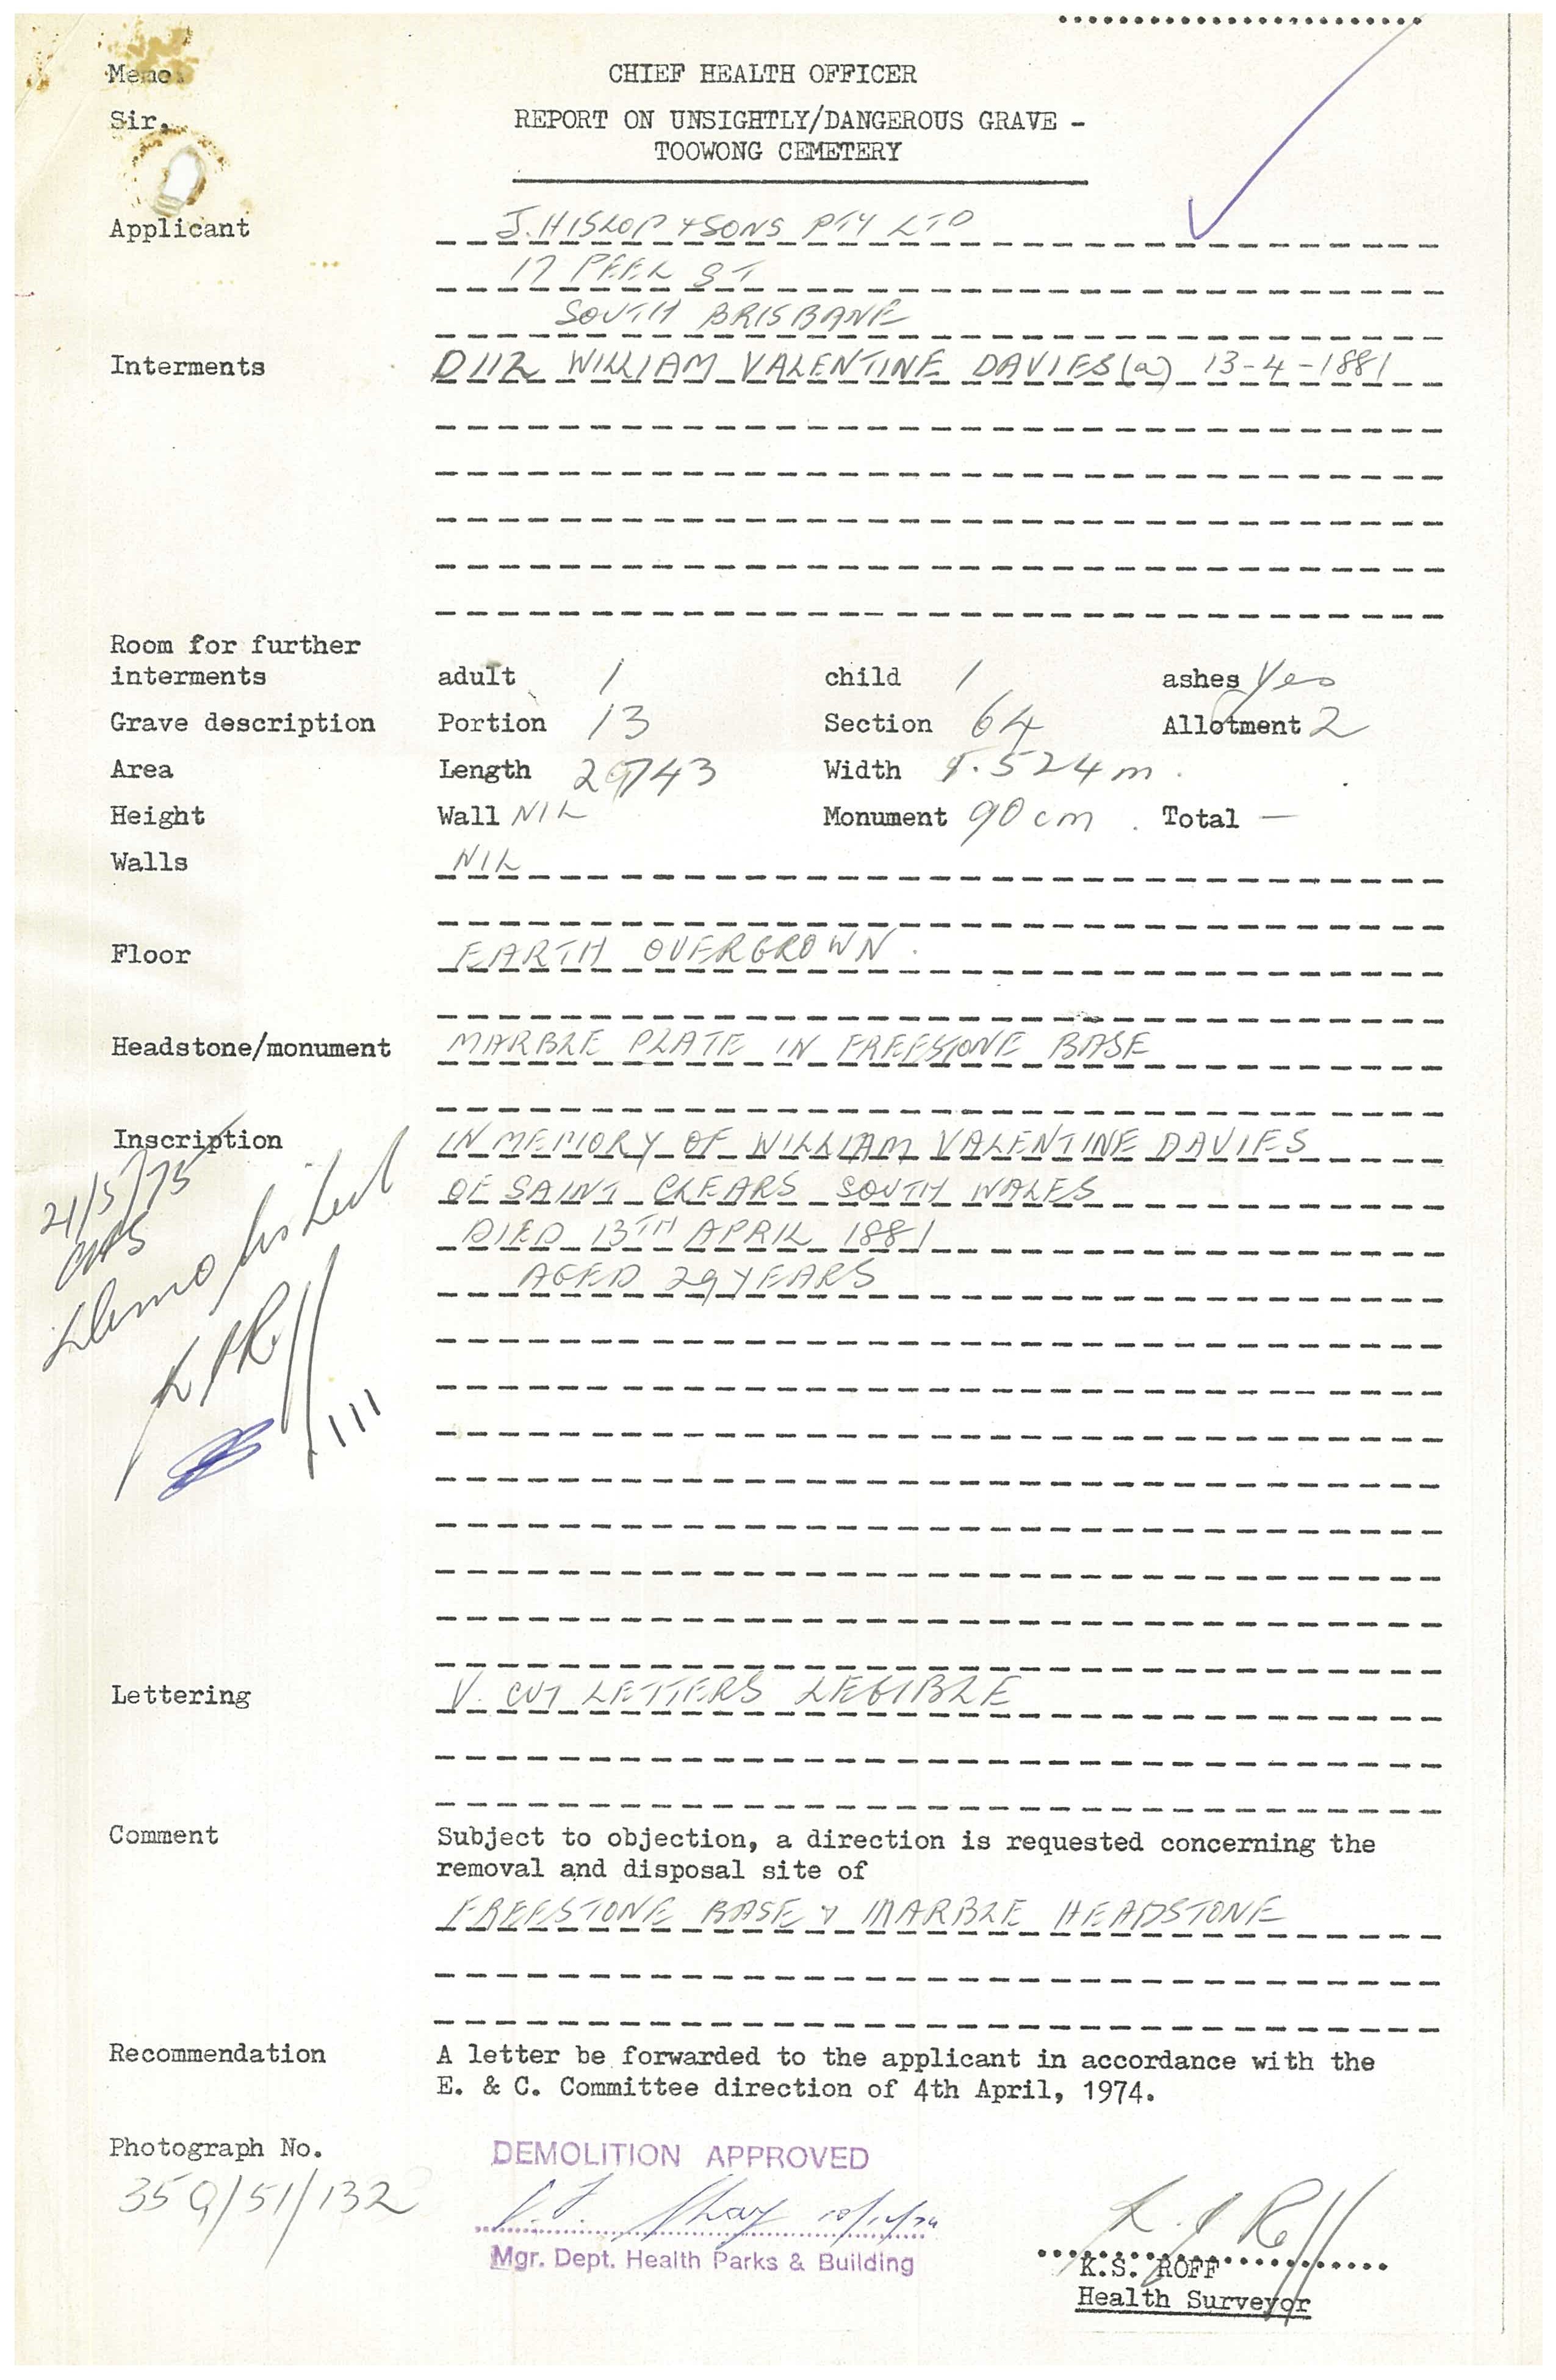 Memo.
CHIEF HEALTH OFFICER
Sir,
REPORT ON UNSIGHTLY/DANGEROUS GRAVE -
TOOWONG CEMETERY
Applicant J. HISLOP & SONS PTY LTD
17 PEEL ST
SOUTH BRISBANE
Interments D112 WILLIAM VALENTINE DAVIES (a) 13-4-1881
Room for further
interments adult 1 child 1 ashes Yes
Grave description Portion 13 Section 64 Allotment 2
Area Length 2743 Width 1.524 m.
Height Wall NIL Monument 90 cm. Total —
Walls NIL
Floor EARTH OVERGROWN.
Headstone/monument MARBLE PLATE IN FREESTONE BASE
Inscription IN MEMORY OF WILLIAM VALENTINE DAVIES
OF SAINT CLEARS SOUTH WALES
DIED 13TH APRIL 1881
AGED 29 YEARS
21/5/75
Demolished
Lettering V. CUT LETTERS LEGIBLE
Comment Subject to objection, a direction is requested concerning the
removal and disposal site of
FREESTONE BASE & MARBLE HEADSTONE
Recommendation A letter be forwarded to the applicant in accordance with the
E. & C. Committee direction of 4th April, 1974.
Photograph No.
35Q/51/132
DEMOLITION APPROVED
10/12/74
Mgr. Dept. Health Parks & Building
K.S. ROFF
Health Surveyor